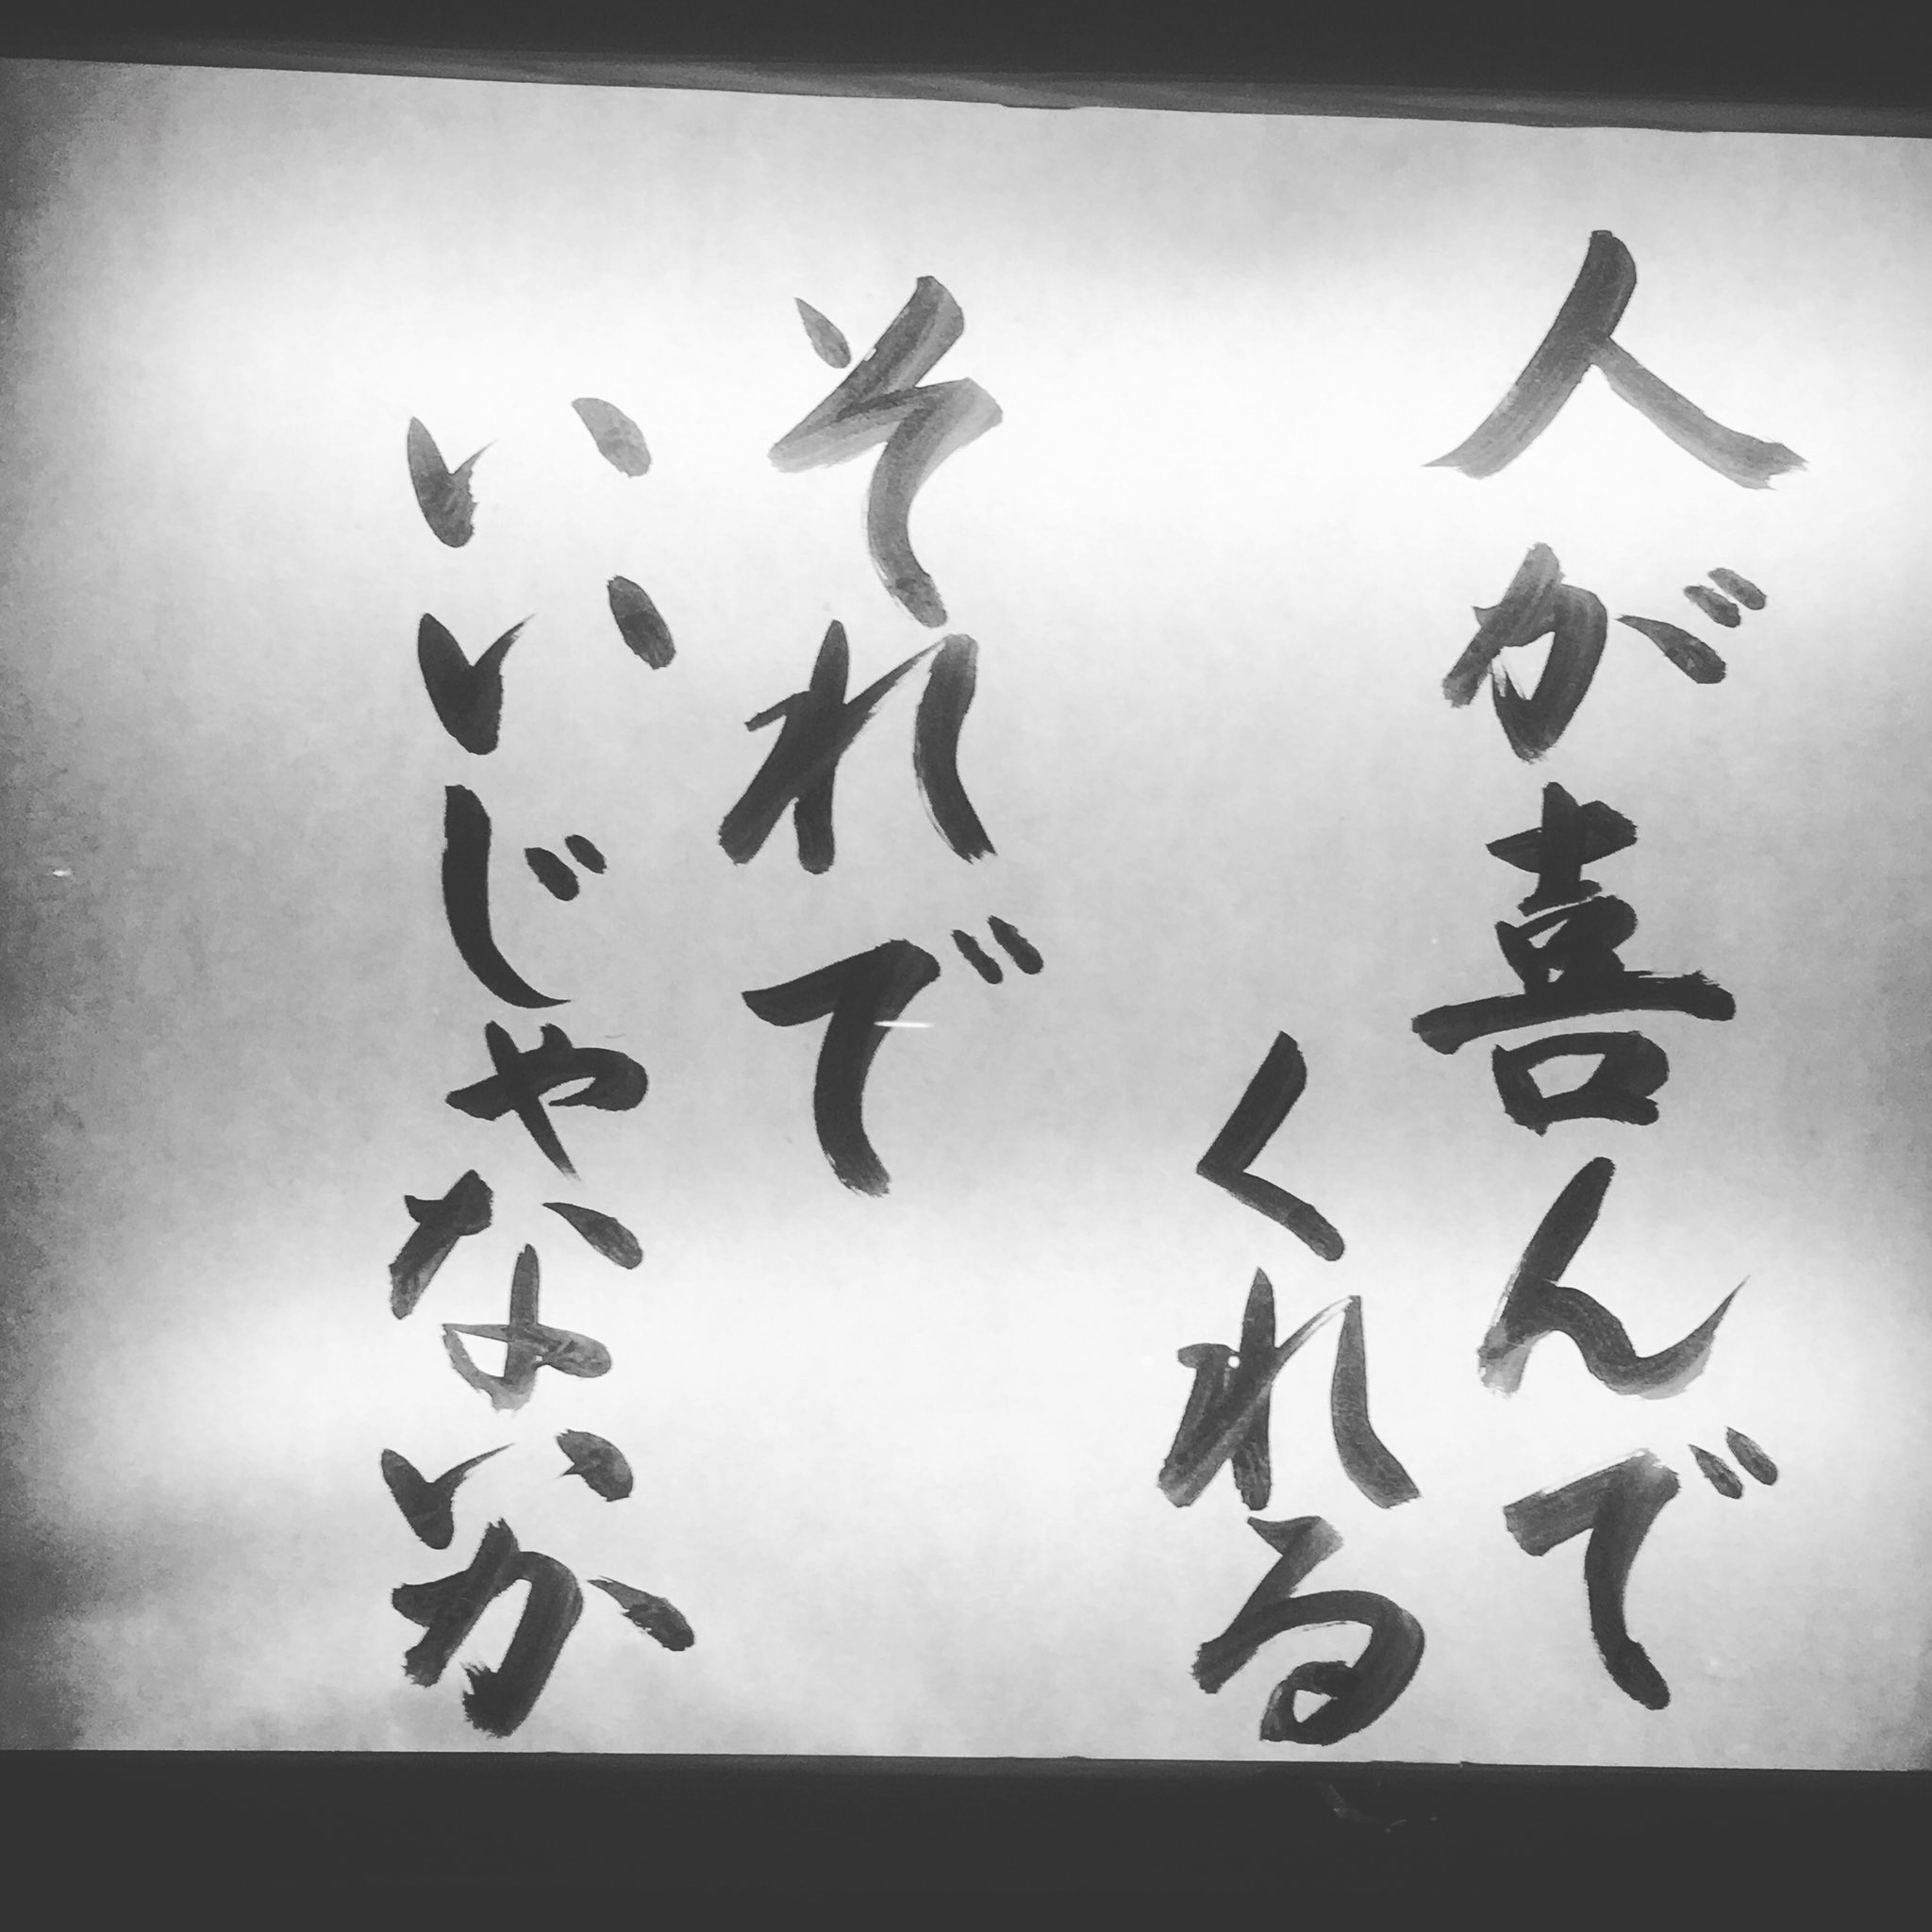 人が喜んで
くれる
それで
いいじゃないか